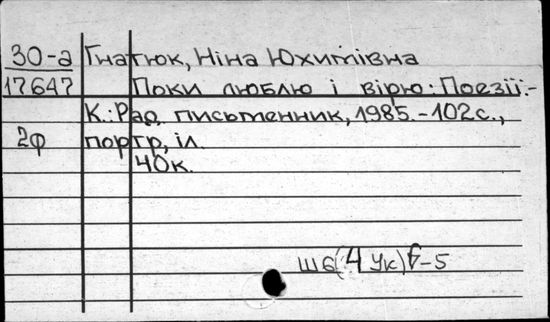 30-а Гнатюк, Ніна Юхимівна
17647 Поки люблю і вірю: Поезії.-
К.: Рад. письменник, 1985.-102с.,
2ф портр, іл.
40к.
Ш6(4Ук)6-5